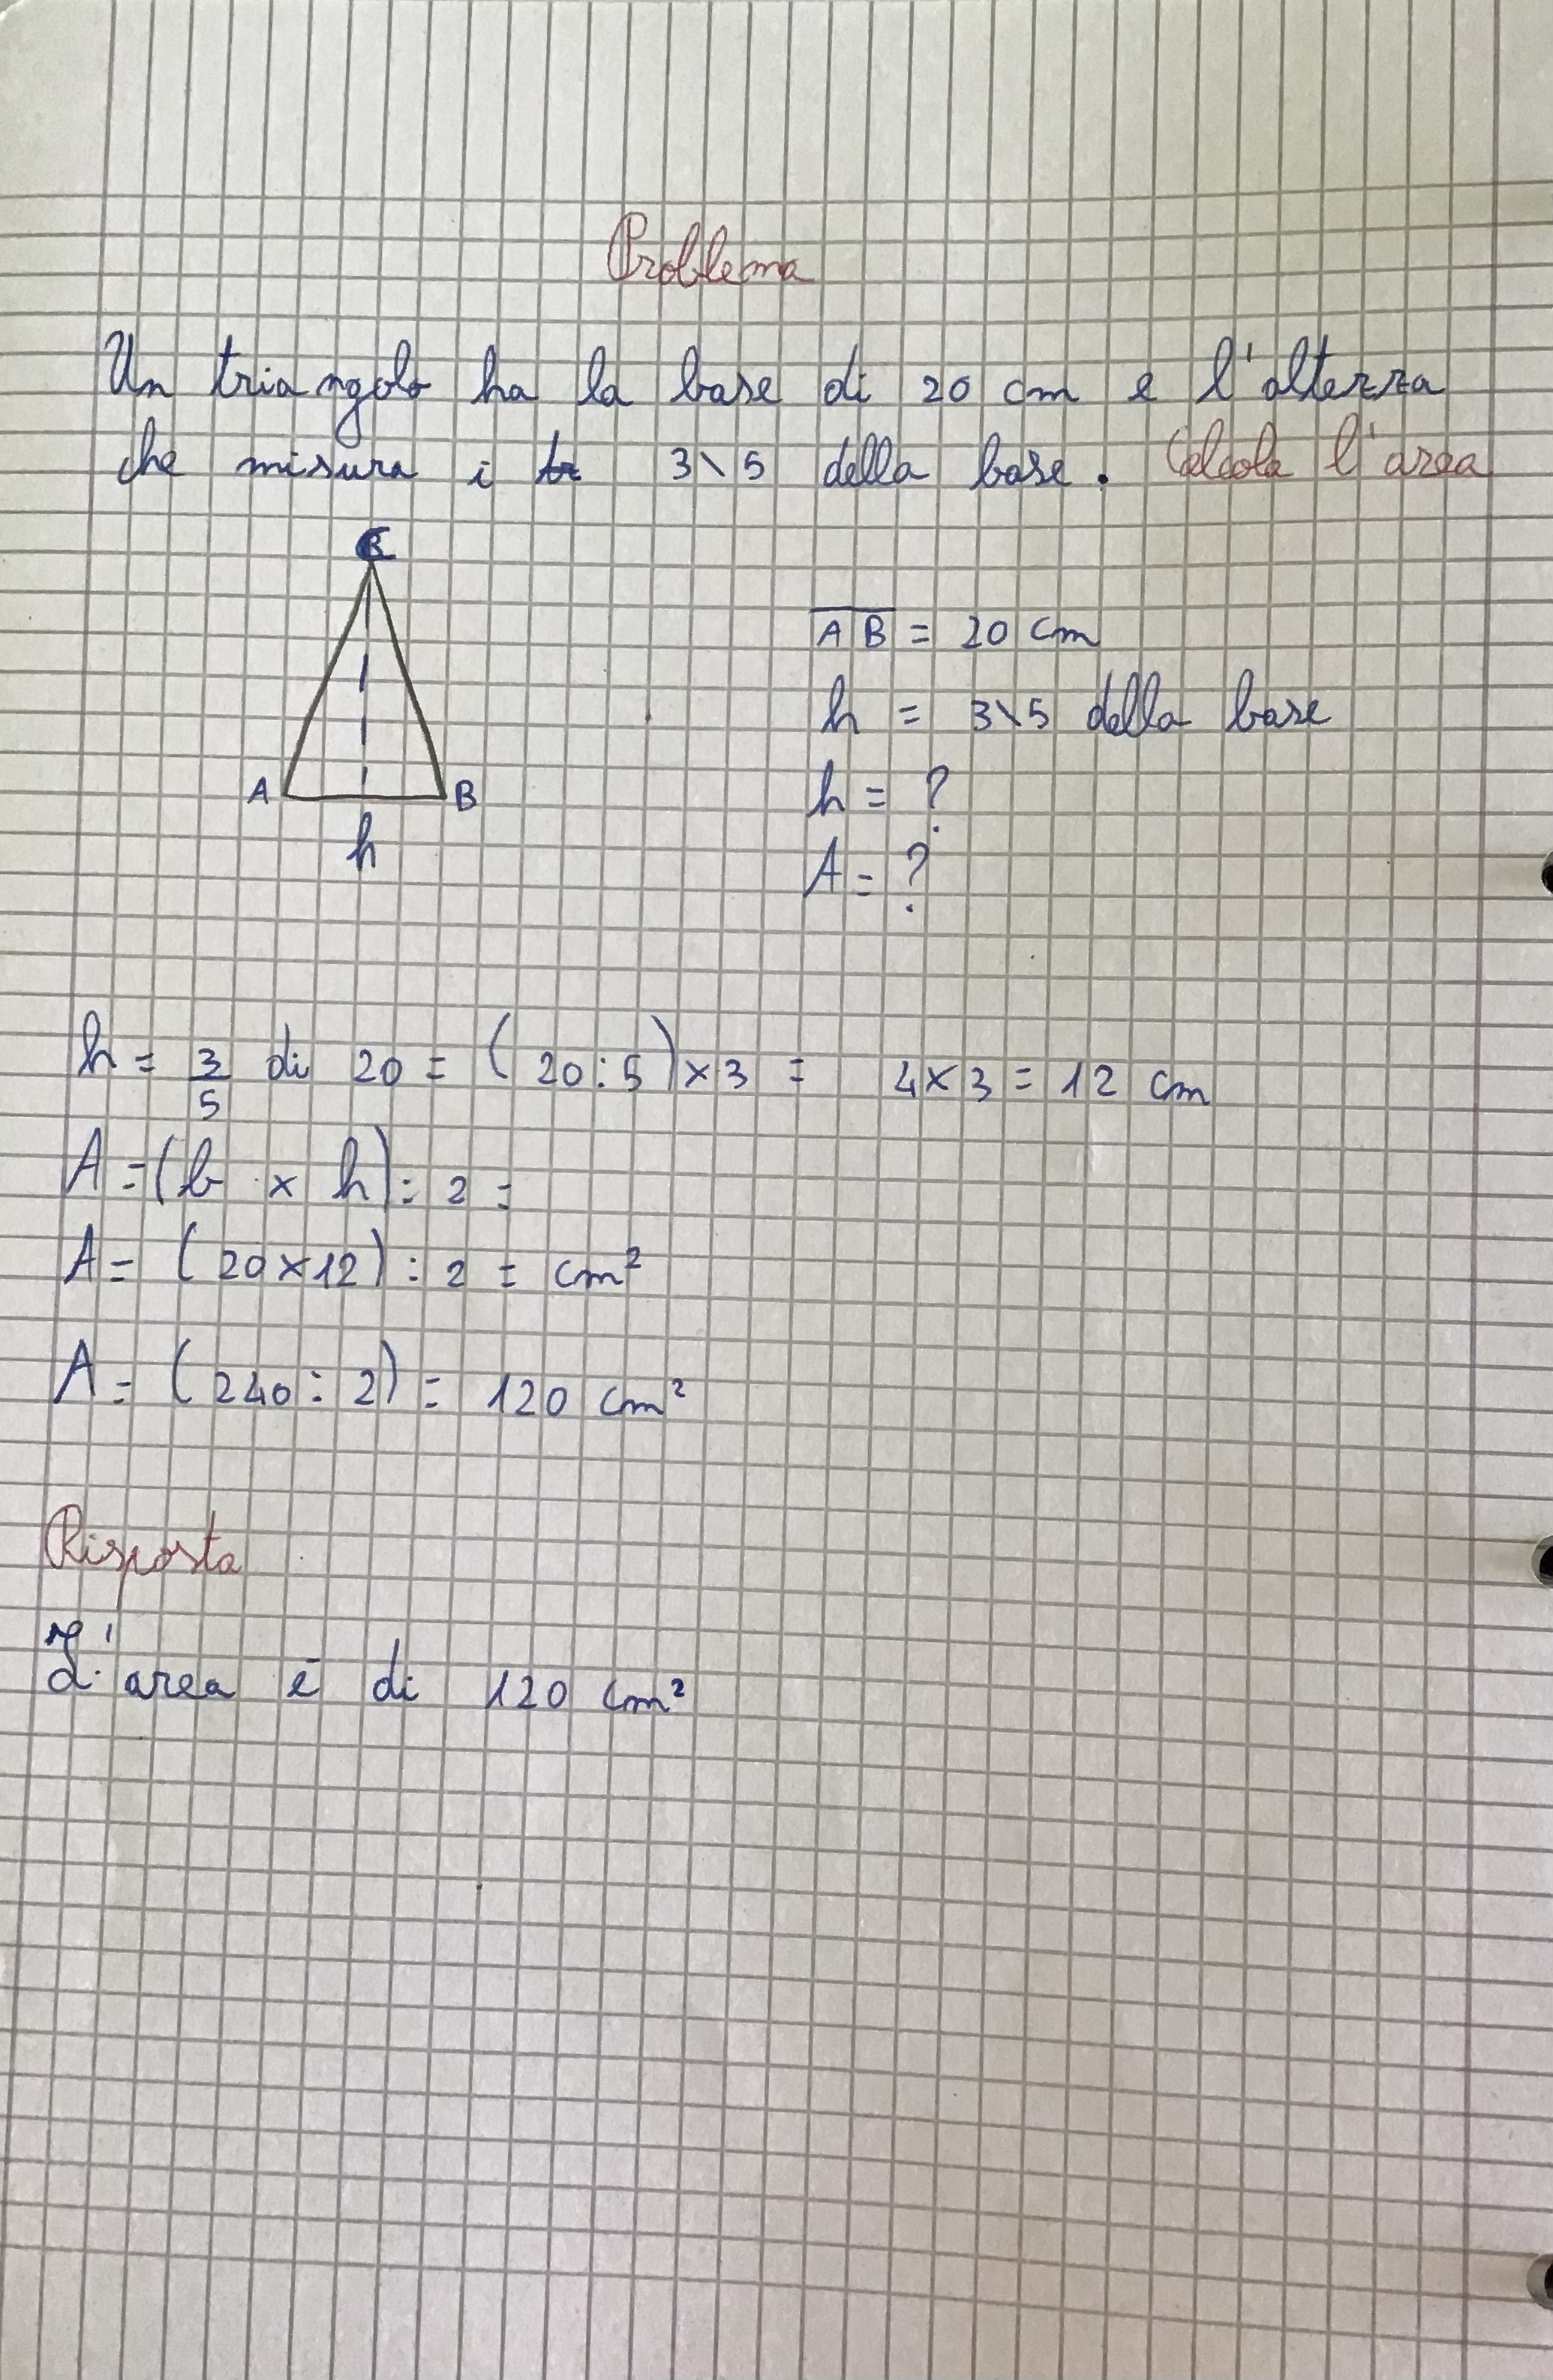 Problema
Un triangolo ha la base di 20 cm e l'altezza
che misura i 3\5 della base. Calcola l'area
C
AB = 20 cm
h = 3\5 della base
h = ?
A = ?
A B
h
h = 3/5 di 20 = (20:5)x3 = 4x3 = 12 cm
A = (b x h) : 2 =
A = (20x12) : 2 = cm²
A = (240 : 2) = 120 cm²
Risposta
L'area è di 120 cm²